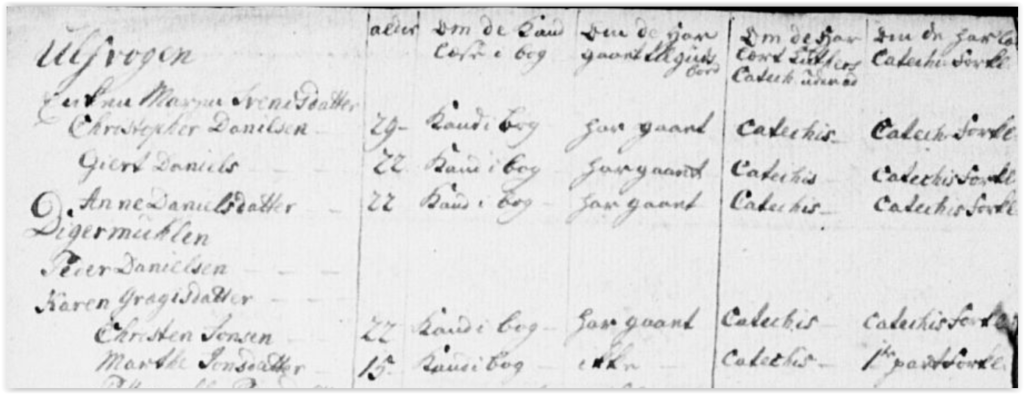 Ulfvogen alder Om de Kand læse i bog Om de har gaaet til guds bord Om de har lært Luthers Catech: udenad Om de har
Catech: Forkl:
Enken Maren Ivensdatter
Christopher Danilsen 29 Kand i bog har gaaet Catechis Catech: Forkl:
Giert Daniels 22 Kand i bog har gaaet Catechis Catechis Forkl:
Anne Danielsdatter 22 Kand i bog har gaaet Catechis Catechis Forkl:
Digermuhlen
Peder Danielsen
Karen Gregisdatter
Christen Jonsen 22 Kand i bog har gaaet Catechis Catechis Forkl:
Marthe Jonsdatter 15 Kand i bog ikke Catechis 1ste part Forkl: